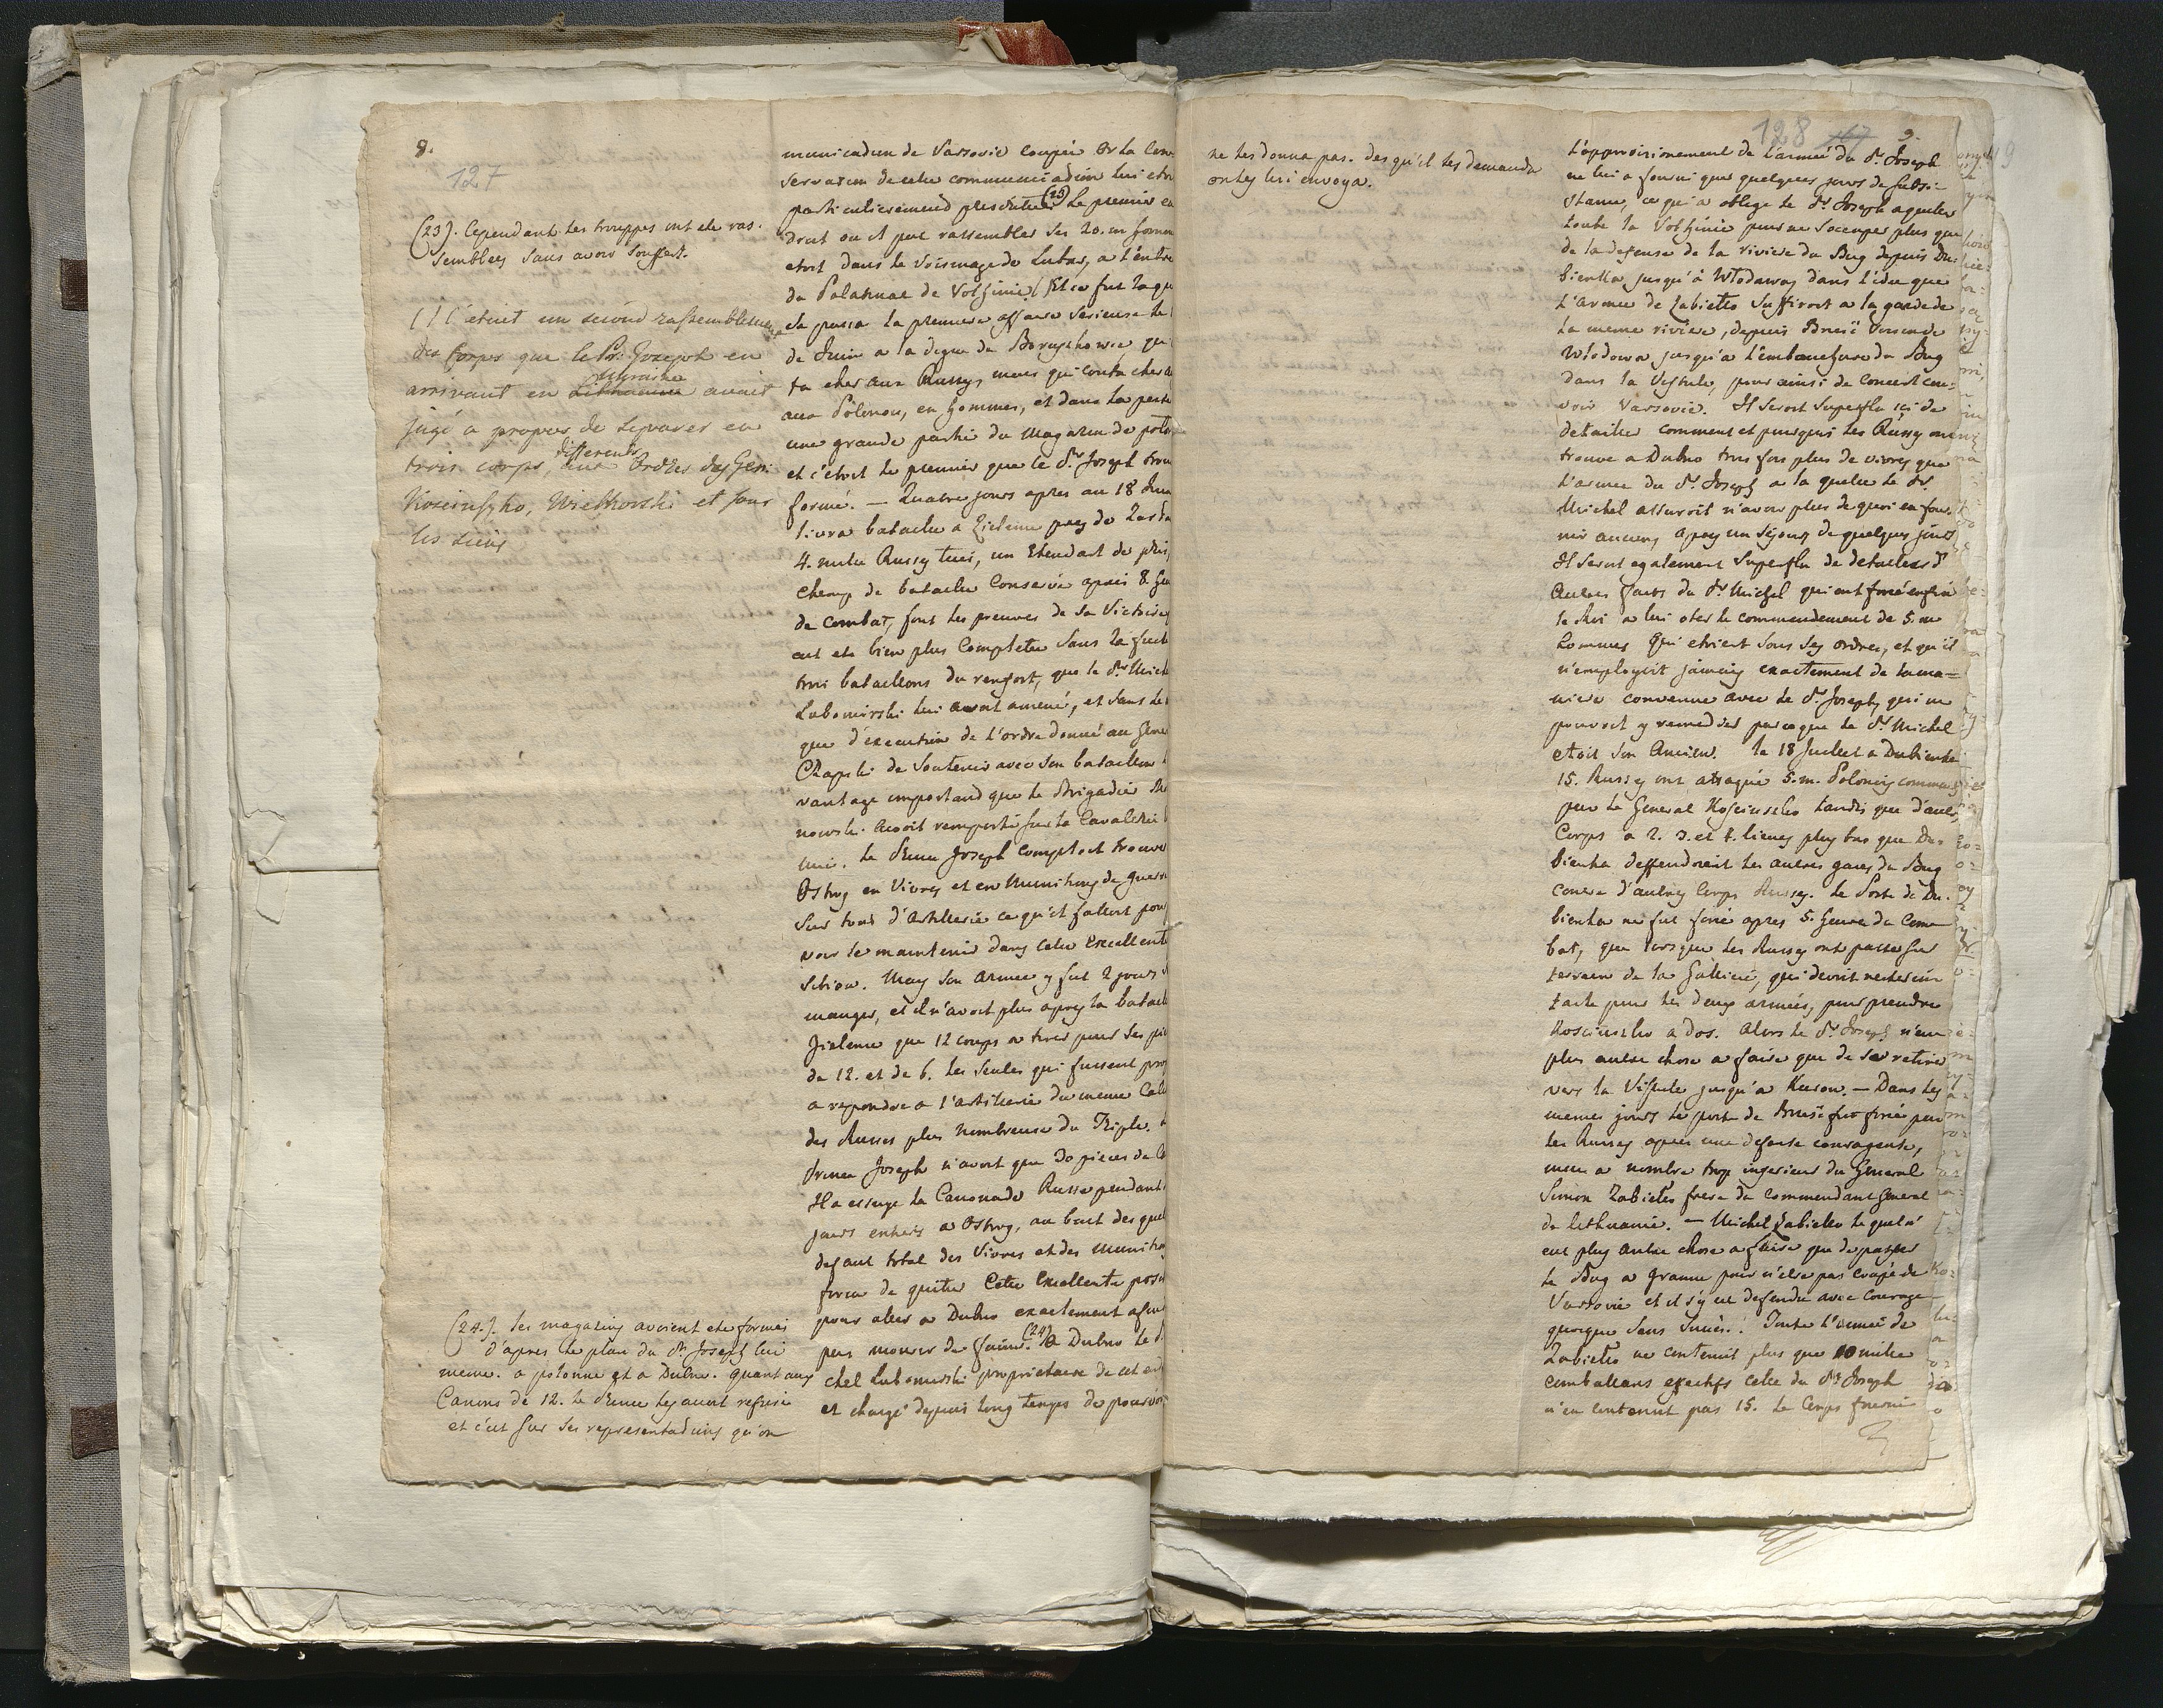 8.
127
(23). Cependant les trouppes ont ete ras-
semblees sans avoir souffert.
(/) C'etoit un second rassemblement
des Corps que le Pr: Joseph en
arrivant en Lithuanie Ukraine avait
jugé a propos de separer en
trois corps, differents aux Ordres des Gen:
Kosciuszko, Wielhorski et sous
les siens
(24). Les magasins avoient ete formés
d'apres le plan du Pr Joseph lui
meme. a polonne et a Dubno. quant aux
Canons de 12. le Prince les avoit refusé
et c'est sur ses representations qu'on
munication de Varsovie coupée Or la Con
servation de cette communication lui etoit
particulierement prescritte (23) Le premier en
droit ou il put rassembler ses 20. m homm
etoit dans le voisinage de Lubar, a l'entrée
du Palatinat de Volhinie (/) Et ce fut la qu
se passa la premiere affaire serieuse le
de Juin a la digue de Boruszkowce, qu
ta cher aux Russes, mais qui couta cher a
aux Polonois, en hommes, et dans la perte
une grande partie du Magazin de polo
et c'étoit le premier que le Pr Joseph trou
formé. — Quatre jours apres au 18 Juin
livra bataille a Zielence pres de Zasla
4. mille Russes tués, un Etendart de pris,
champ de bataille Conservé apres 8 heu
de combat, font les preuves de sa Victoire
eut ete bien plus Complette sans la fuite
trois bataillons du renfort, que le Pr Mich
Lubomirski lui avoit amené, et sans le
que d'execution de l'ordre donné au Gene
Czapski de soutenir avec son bataillon
vantage important que le Brigadier M
nowski avoit remporté sur la Cavalerie
mie. Le Prince Joseph comptoit trouver
Ostrog en Vivres et en Munitions de guerre
sur tout d'Artillerie ce qu'il falloit pou
voir se maintenir dans cette Excellente
sition. Mais son armée y fut 2 jours s
manger, et il n'avoit plus apres la bataill
Zielence que 12 coups a tirer pour ses pie
de 12. et de 6. les seules qui fussent prop
a repondre a l'artillerie du meme Cali
des Russes plus nombreuse du Triple.
Prince Joseph n'avoit que 30 pieces de
Il a essuyé la Canonade Russe pendant
jours entiers a Ostrog, au bout des quel
defaut total des Vivres et des munition
força de quiter Cette Excellente posi
pour aller a Dubno exactement afin
pas mourir de faim. (24) A Dubno le P.
chel Lubomirski proprietaire de cet en
et chargé depuis long temps de pourvoi
ne les donna pas. des qu'il les demanda
on les lui envoya.
128 167 9.
L'approvisionement de l'armée du Pr Joseph
ne lui a fourni que quelques jours de subsi-
stance, ce qui a obligé le Pr Joseph a quiter
toute la Volhinie pour ne s'occuper plus que
de la defense de la riviere du Bug depuis Du-
bienka jusqu'à Wlodawa dans l'idée que
l'armée de Zabiello suffiroit a la garde de
la meme riviere, depuis
Wlodawa jusqu'a l'embouchure du Bug
dans la Vistule, pour ainsi de concert cou-
vrir Varsovie. Il seroit superflu ici de
detailler comment et pourquoi les Russes ont
trouvé a Dubno trois fois plus de vivres que
l'armée du Pr Joseph a la quelle le Pr.
Michel assuroit n'avoir plus de quoi en four-
nir aucuns apres un sejour de quelques jours
Il seroit egalement superflu de detailler d'
autres faits du Pr Michel qui ont forcé enfin
le Roi a lui oter le commendement de 5. m
hommes qui etoient sous ses ordres, et qu'il
n'employoit jamais exactement de la ma-
niere convenue avec le Pr Joseph, qui ne
pouvoit y remedier parceque le Pr Michel
etoit son Ancien. le 18 Juillet a Dubienka
15. Russes ont attaqué 5. m. Polonois commandés
par le General Kosciuszko tandis que d'autres
Corps a 2. 3. et 4. lieues plus bas que Du-
bienka deffendoient les autres gués du Bug
contre d'autres Corps Russes. Le Poste de Du-
bienka ne fut forcé apres 5. heures de Com-
bat, que lorsque les Russes ont passé sur
terrain de la Gallicie, qui devoit rester in-
tacte pour les deux armées, pour prendre
Kosciuszko a dos. Alors le Pr Joseph n'eut
plus autre chose a faire que de se retirer
vers la Vistule jusqu'a Kurow. — Dans les
memes jours le poste de Brzesc fut forcé par
les Russes apres une defense courageuse,
mais a nombre trop inferieur du General
Simon Zabiello frere du Commendant General
de Lithuanie. — Michel Zabiello le quel n'
eut plus autre chose a faire que de passer
le Bug a Granne pour n'etre pas coupé de
Varsovie et il s'y est defendu avec courage
quoique sans succès. Toute l'armée de
Zabiello ne contenoit plus que 10 mille
combattans effectifs celle du Pr Joseph
n'en contenoit pas 15. Le Corps fourni